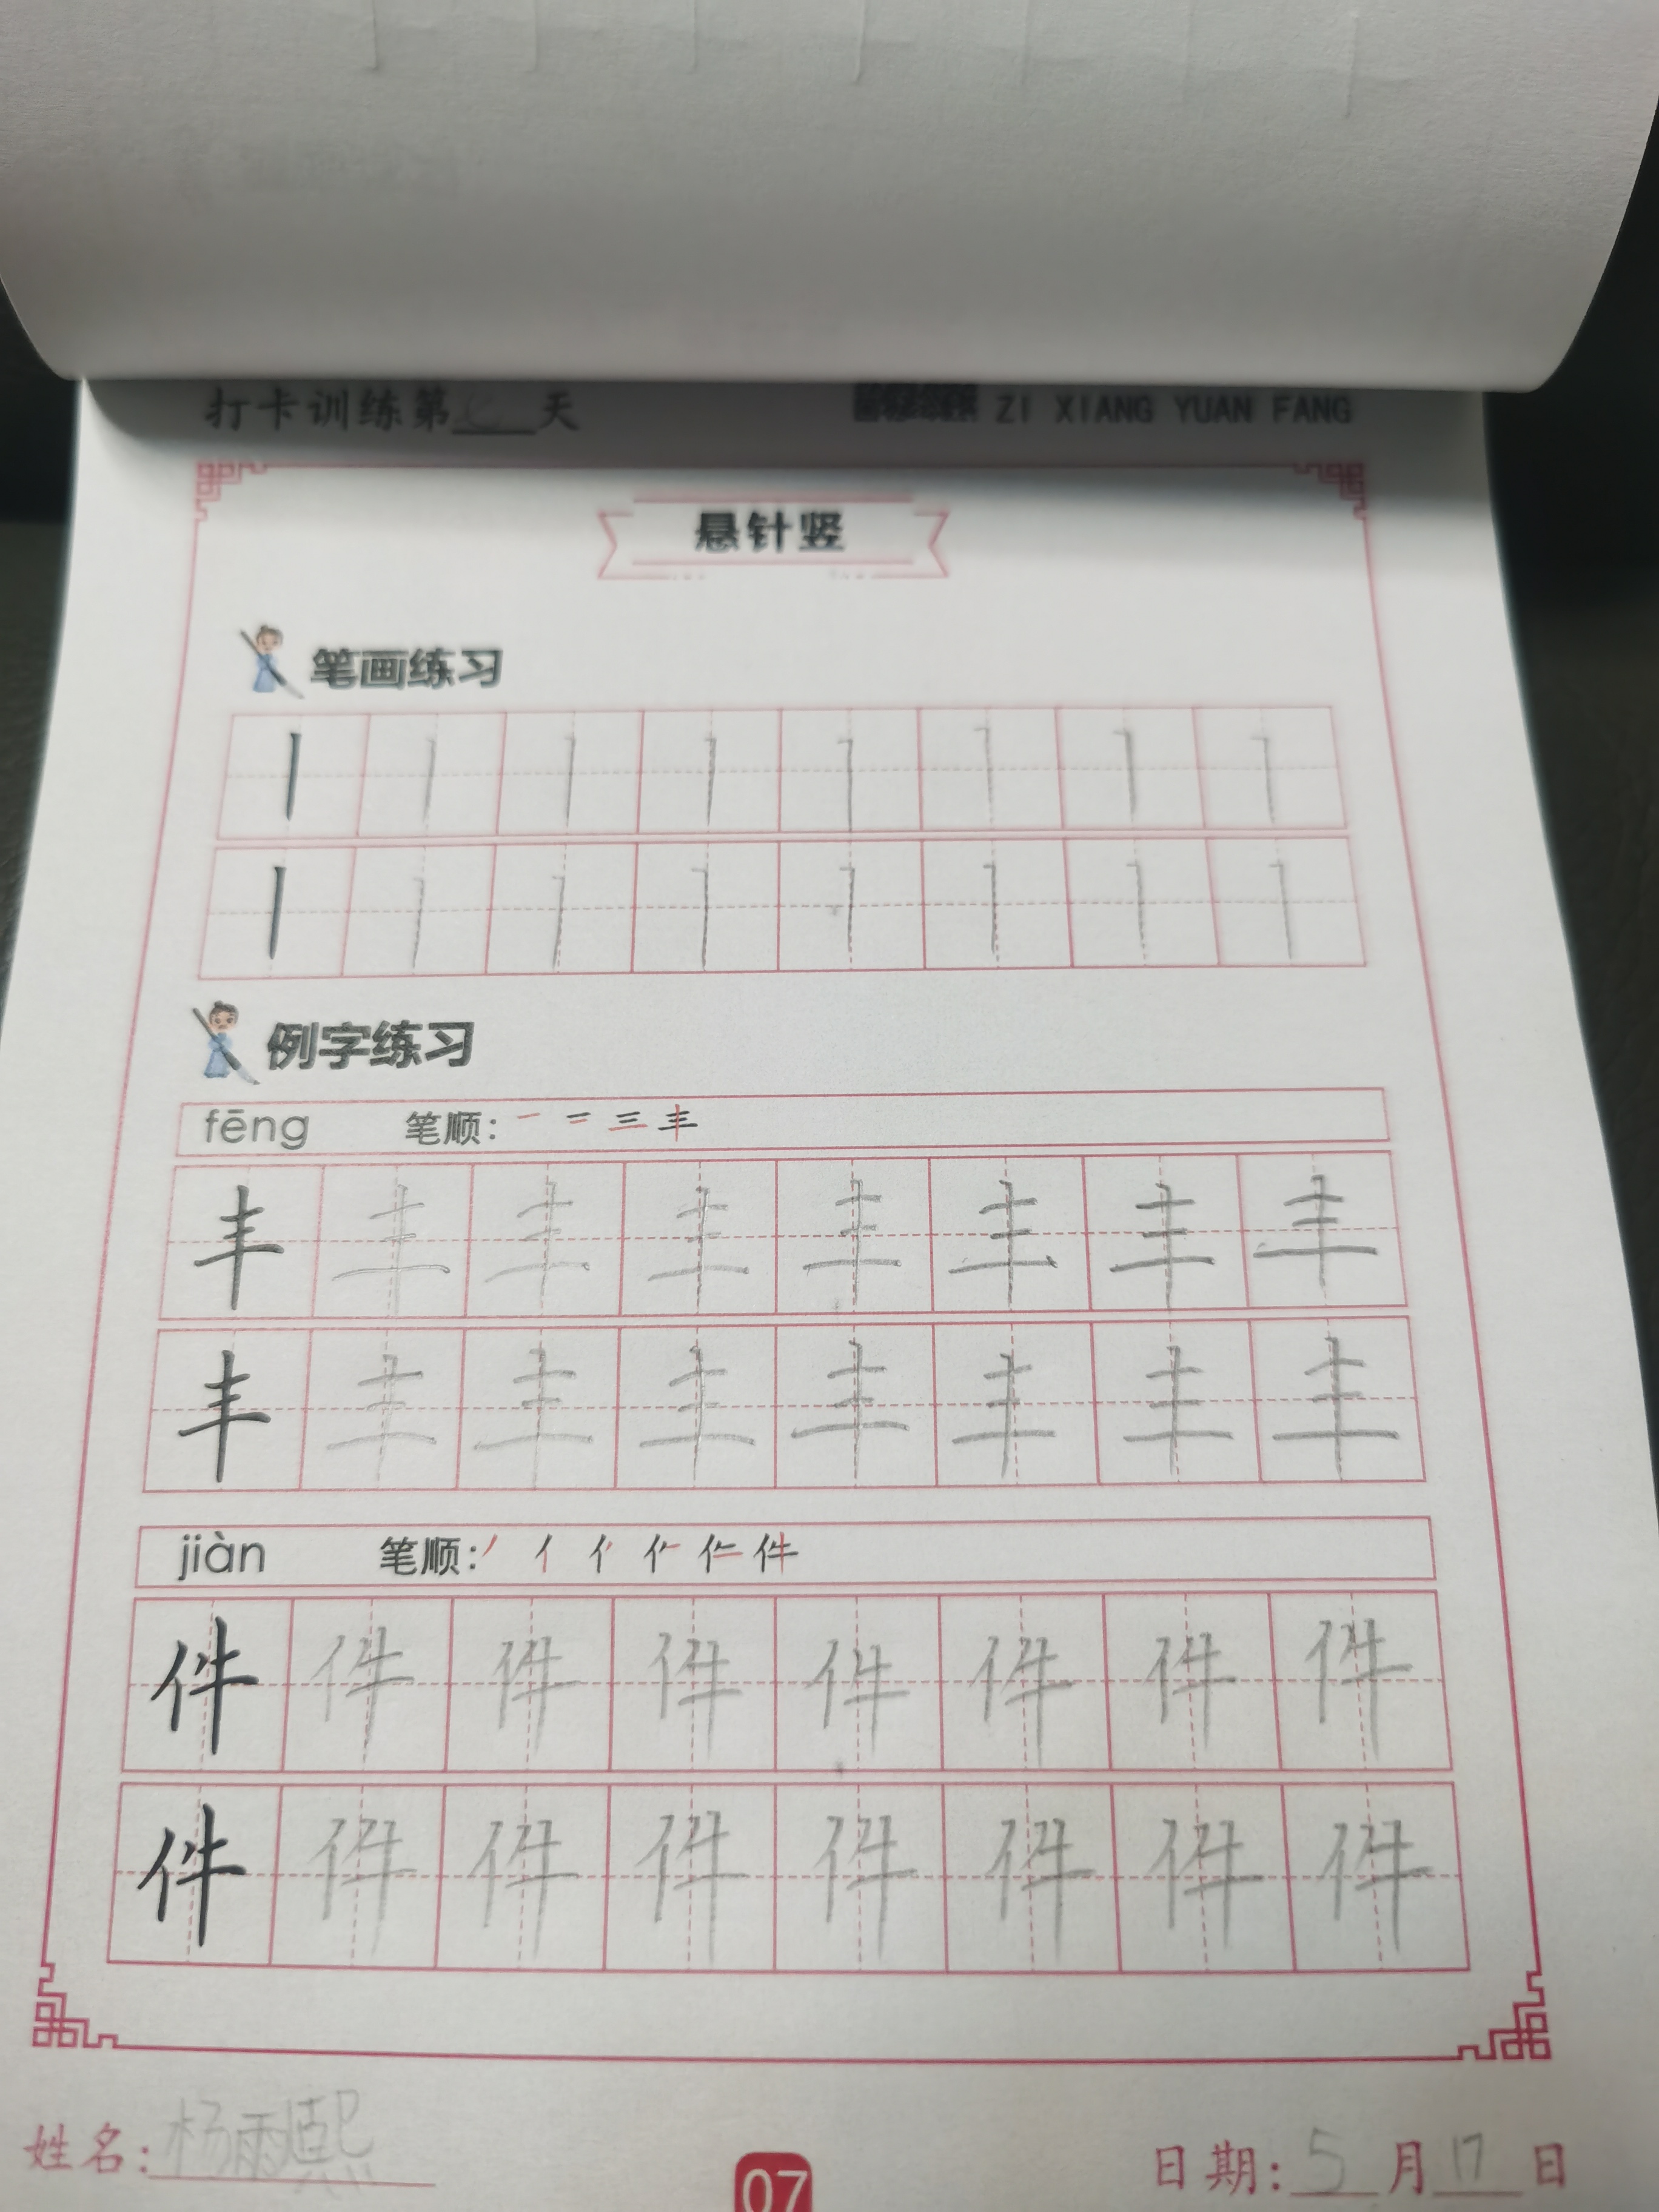 打卡训练第七天 ZI XIANG YUAN FANG
悬针竖
笔画练习
丨 丨 丨 丨 丨 丨 丨 丨
丨 丨 丨 丨 丨 丨 丨 丨
例字练习
fēng 笔顺: 一 二 三 丰
丰 丰 丰 丰 丰 丰 丰 丰
丰 丰 丰 丰 丰 丰 丰 丰
jiàn 笔顺: 件
件 件 件 件 件 件 件 件
件 件 件 件 件 件 件 件
姓名:杨雨熙 07 日期:5月17日